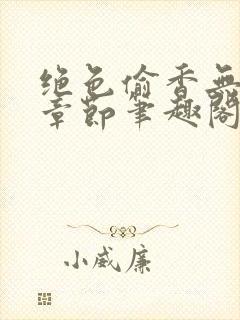 绝色偷香无
章节笔趣阁
小威廉